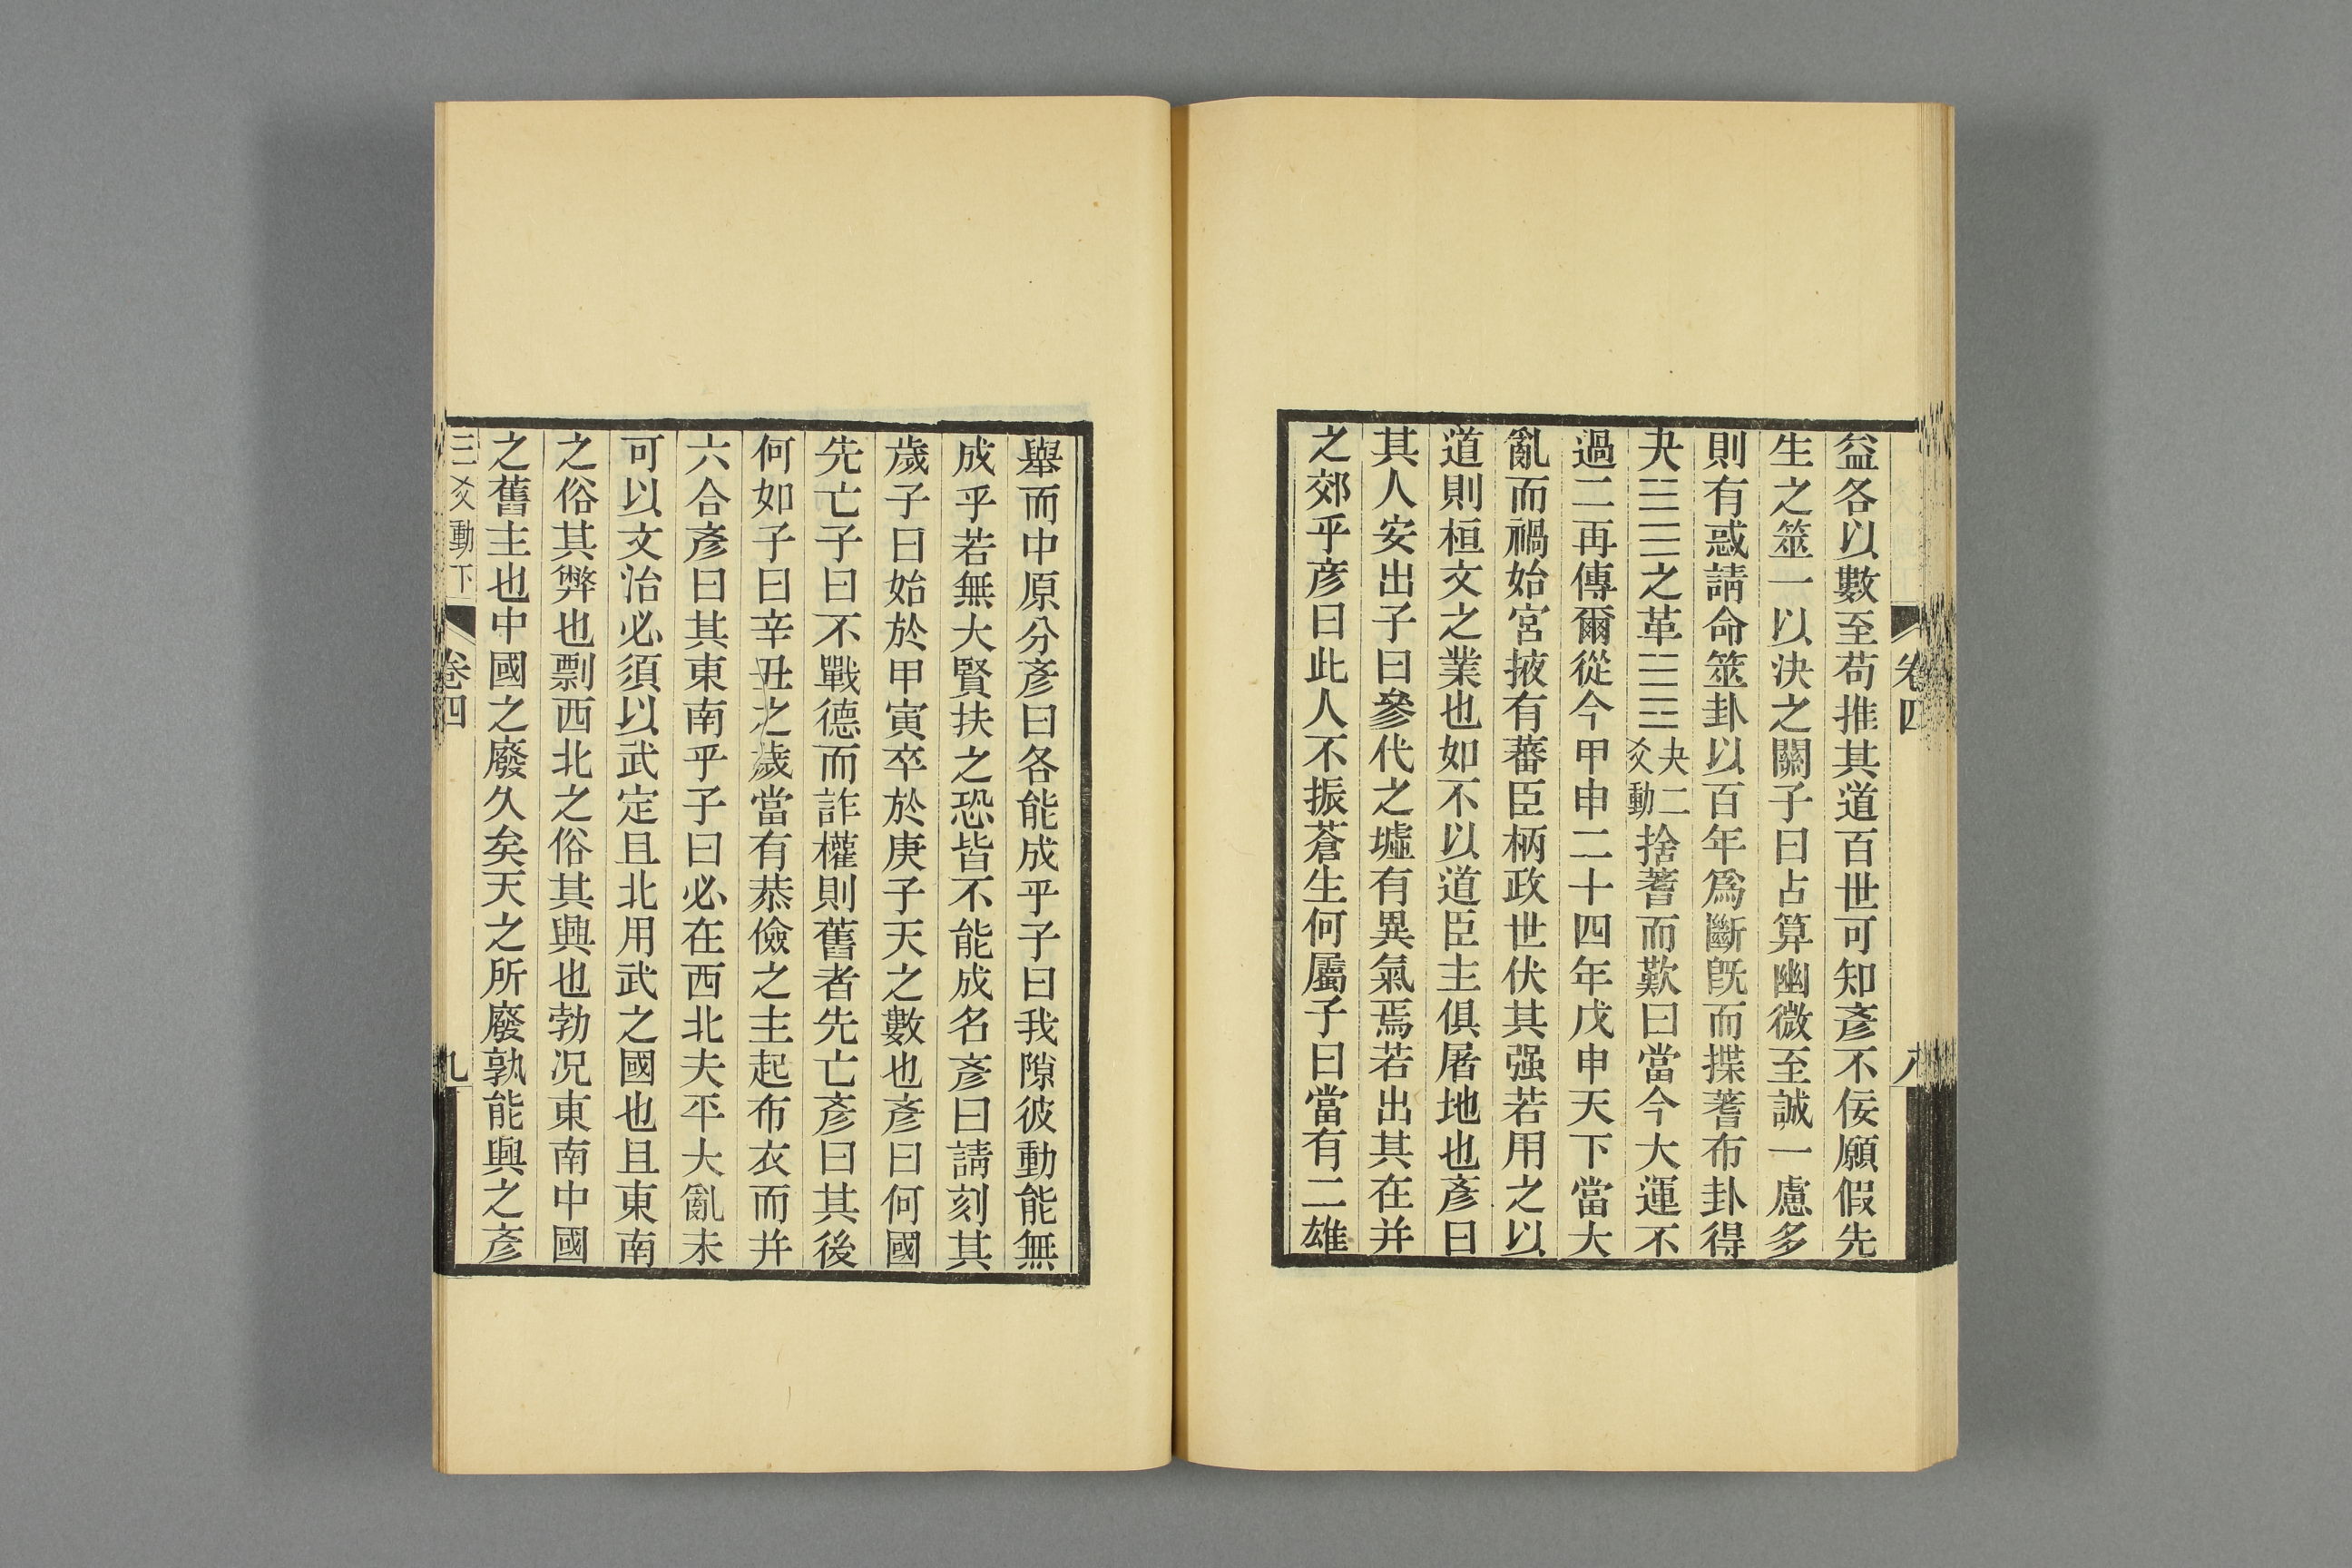 益各以數至苟推其道百世可知彥不佞願假先
生之筮一以決之關子曰占算幽微至誠一慮多
則有惑請命筮卦以百年爲斷旣而揲蓍布卦得
夬之革夬二爻動捨蓍而歎曰當今大運不
過二再傳爾從今甲申二十四年戊申天下當大
亂而禍始宮掖有蕃臣柄政世伏其强若用之以
道則桓文之業也如不以道臣主俱屠地也彥曰
其人安出子曰參代之墟有異氣焉若出其在并
之郊乎彥曰此人不振蒼生何屬子曰當有二雄
卷四
八
舉而中原分彥曰各能成乎子曰我隙彼動能無
成乎若無大賢扶之恐皆不能成名彥曰請刻其
歲子曰始於甲寅卒於庚子天之數也彥曰何國
先亡子曰不戰德而詐權則舊者先亡彥曰其後
何如子曰辛丑之歲當有恭儉之主起布衣而并
六合彥曰其東南乎子曰必在西北夫平大亂未
可以文治必須以武定且北用武之國也且東南
之俗其弊也剽西北之俗其興也勃况東南中國
之舊主也中國之廢久矣天之所廢孰能興之彥
三爻動下
卷四
九